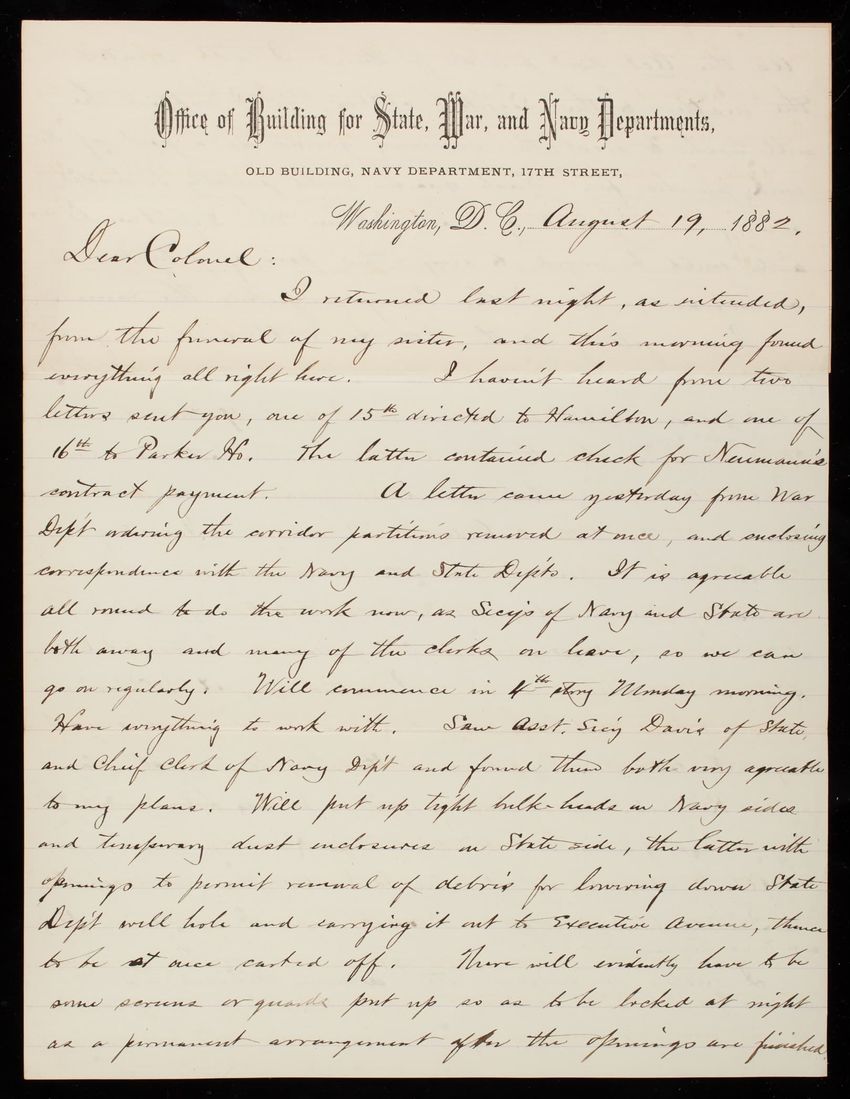 Office of Building for State, War, and Navy Departments,
OLD BUILDING, NAVY DEPARTMENT, 17TH STREET,
Washington, D. C., August 19, 1882.
Dear Colonel:
I returned last night, as intended,
from the funeral of my sister, and this morning found
everything all right here. I haven't heard from two
letters sent you, one of 15th directed to Hamilton, and one of
16th to Parker Ho. The latter contained check for Neumann's
contract payment. A letter came yesterday from War
Dep't ordering the corridor partitions removed at once, and enclosing
correspondence with the Navy and State Dep'ts. It is agreeable
all round to do the work now, as Sec'ys of Navy and State are
both away and many of the clerks on leave, so we can
go on regularly. Will commence in 4th story Monday morning.
Have everything to work with. Saw Asst. Sec'y Davis of State,
and Chief Clerk of Navy Dep't and found them both very agreeable
to my plans. Will put up tight bulk-heads on Navy sides
and temporary dust enclosures on State side, the latter with
openings to permit removal of debris for lowering down State
Dep't well hole and carrying it out to Executive Avenue, thence
to be at once carted off. There will evidently have to be
some screens or guards put up so as to be locked at night
as a permanent arrangement after the openings are finished.